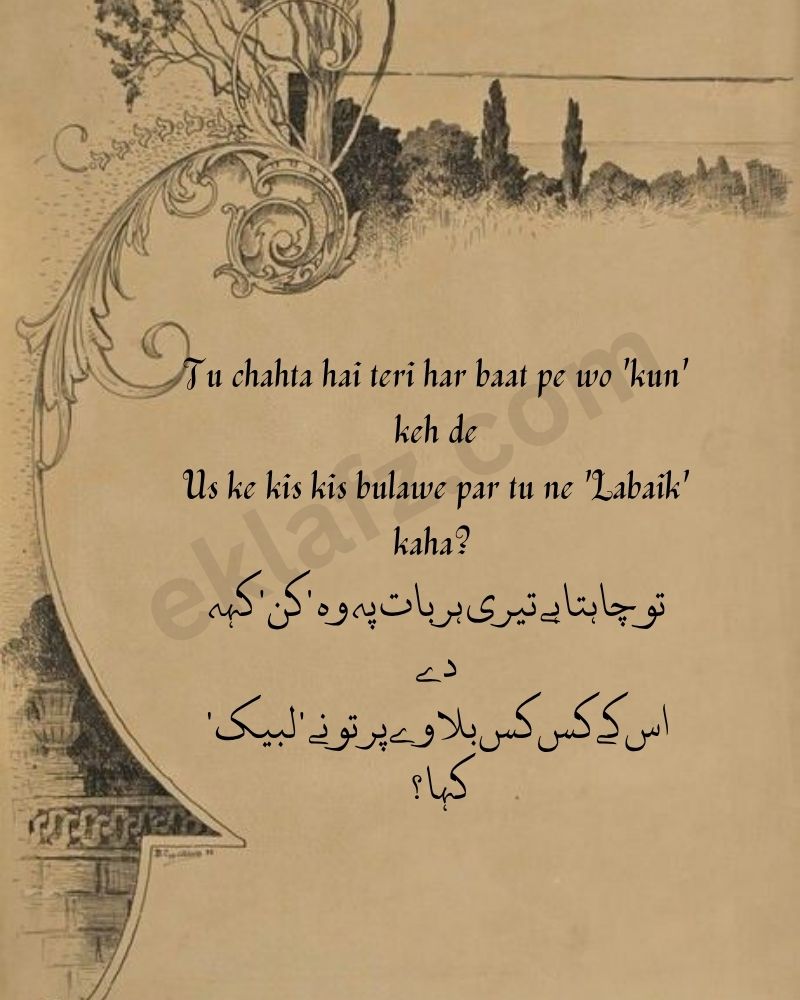 Tu chahta hai teri har baat pe wo 'kun'
keh de
Us ke kis kis bulawe par tu ne 'Labaik'
kaha?
تو چاہتا ہے تیری ہر بات پہ وہ 'کن' کہہ
دے
اس کے کس کس بلاوے پر تو نے 'لبیک'
کہا؟
eklafz.com